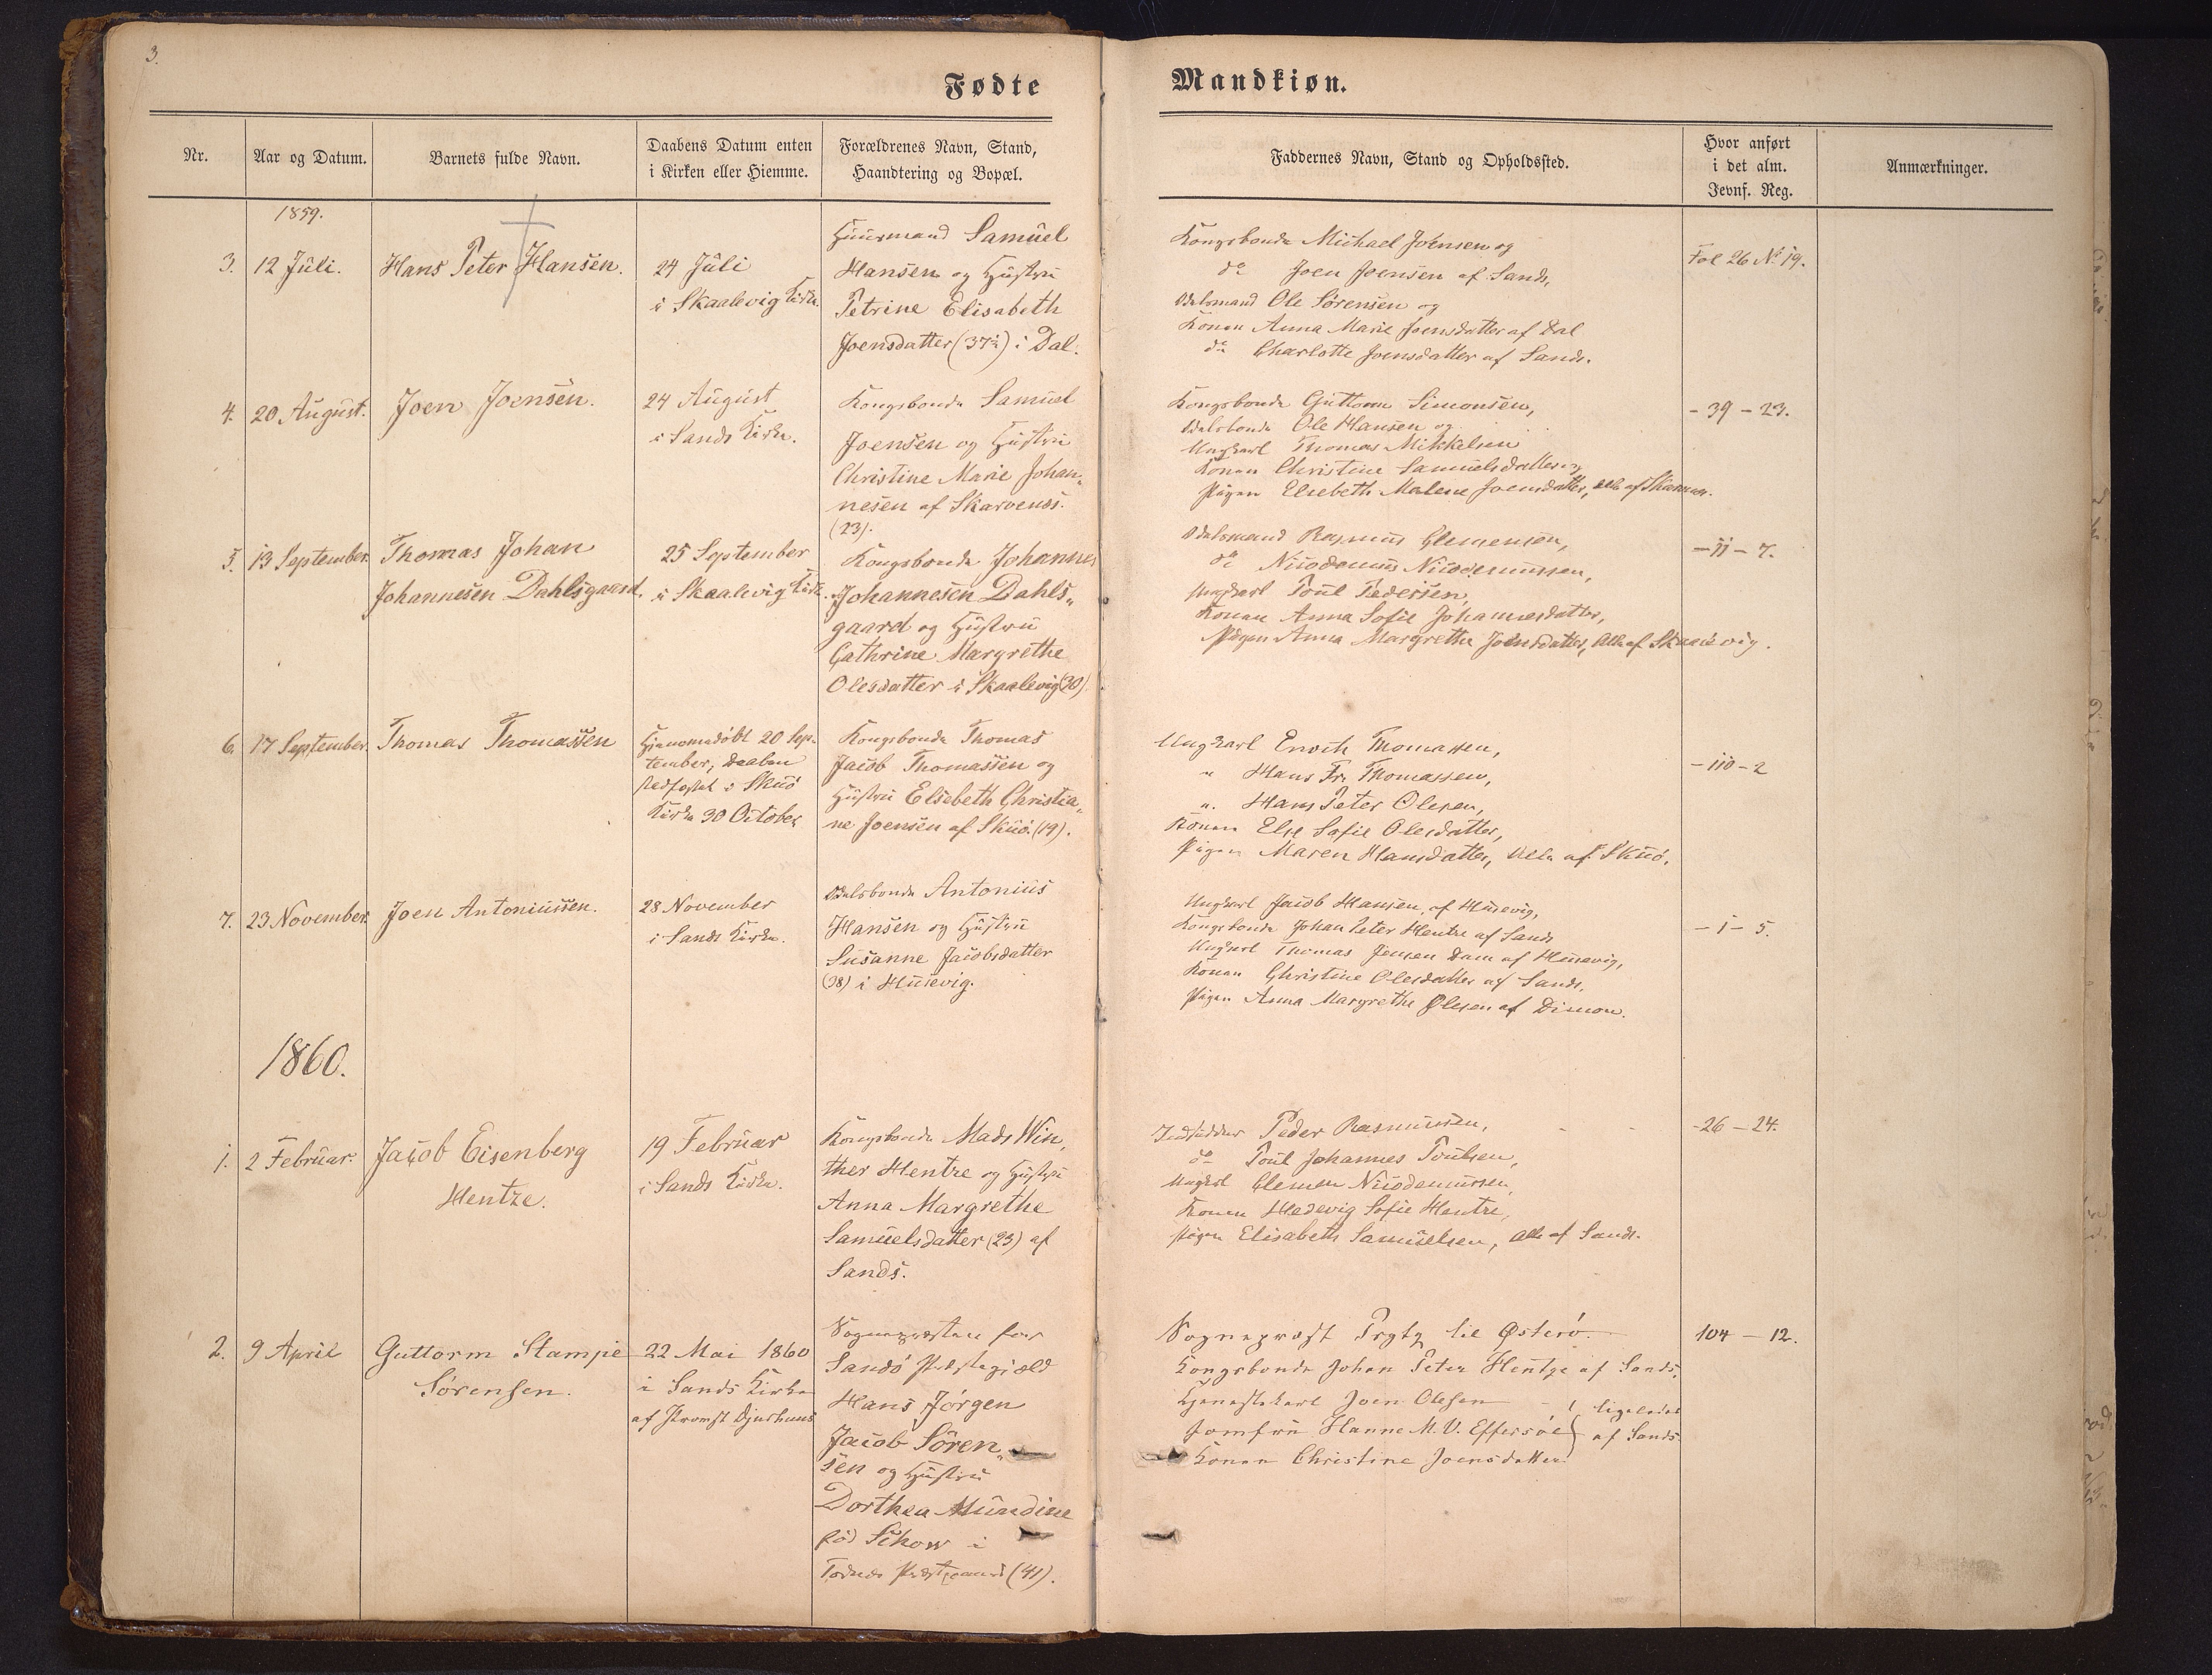 3.
Fødte
Mandkiøn.
Nr.
Aar og Datum.
Barnets fulde Navn.
Daabens Datum enten
i Kirken eller Hiemme.
Forældrenes Navn, Stand,
Haandtering og Bopæl.
Faddernes Navn, Stand og Opholdssted.
Hvor anført
i det alm.
Jevnf. Reg.
Anmærkninger.
1859.
3.
12 Juli.
Hans Peter Hansen.
24 Juli
i Skaalevig Kirke.
Huusmand Samuel
Hansen og Hustru
Petrine Elisabeth
Joensdatter (37½) i Dal.
Kongsbonde Michael Joensen og
do Joen Joensen af Sand,
Odelsmand Ole Sørensen og
Konen Anna Marie Joensdatter af Dal
do Charlotte Joensdatter af Sand.
Fol 26 No 19.
4.
20 August.
Joen Joensen.
24 August
i Sands Kirke.
Kongsbonde Samuel
Joensen og Hustru
Christine Marie Johan„
nesen af Skarvenes.
(23).
Kongsbonde Guttorm Simonsen,
Odelsbonde Ole Hansen og
Ungkarl Thomas Mikkelsen
Konen Christine Samuelsdatter og
Pigen Elsebeth Malene Joensdatter, alle af
- 39 - 23.
5.
13 September.
Thomas Johan
Johannesen Dahlsgaard.
25 September
i Skaalevig Kirke.
Kongsbonde Johannes
Johannesen Dahls„
gaard og Hustru
Cathrine Margrethe
Olesdatter i Skaalevig (30)
Odelsmand Rasmus Clemensen,
do Nicodemus Nicodemussen,
Ungkarl Poul Pedersen,
Konen Anna Sofie Johannesdatter,
Pigen Anna Margrethe Joensdatter, Alle af Skaalevig.
- 11 - 7.
6.
17 September.
Thomas Thomassen
Hjemmedøbt 20 Sep-
tember, Daaben
stedfæstet i Skuø
Kirke 30 October
Kongsbonde Thomas
Jacob Thomassen og
Hustru Elsebeth Christia„
ne Joensen af Skuø. (19).
Ungkarl Enoch Thomassen,
" Hans Fr. Thomassen,
". Hans Peter Olesen,
Konen Else Sofie Olesdatter,
Pigen Maren Hansdatter, Alle af Skuø.
- 110 - 2
7.
23 November.
Joen Antoniussen.
28 November
i Sands Kirke.
Odelsbonde Antonius
Hansen og Hustru
Susanne Jacobsdatter
(38) i Husevig.
Ungkarl Jacob Hansen, af Husevig,
Kongsbonde Johan Peter Hentze af Sand
Ungkarl Thomas Jensen Dam af Husevig,
Konen Christine Olesdatter af Sand,
Pigen Anna Margrethe Olesen af Dimon.
- 1 - 5.
1860.
1.
2 Februar.
Jacob Eisenberg
Hentze.
19 Februar
i Sands Kirke.
Kongsbonde Mads Win„
ther Hentze og Hustru
Anna Margrethe
Samuelsdatter (23) af
Sands.
Indsidder Peder Rasmussen,
do Poul Johannes Poulsen,
Ungkarl Clemen Nicodemussen,
Konen Hedevig Sofie Hentze,
Pigen Elisabeth Samuelsen, Alle af Sand.
- 26 - 24.
2.
9 April
Guttorm Stampe
Sørensen.
22 Mai 1860
i Sands Kirke
af Provst Djurhuus
Sognepræsten for
Sandø Præstegjæld
Hans Jørgen
Jacob Sören„
sen og Hustru
Dorthea Mundine
fød Schow i
Todnæs Præstegaard (41).
Sognepræst Prytz til Østerø.
Kongsbonde Johan Peter Hentze af Sands.
Tjenestekarl Joen Olesen
Jomfru Hanne M. V. Effersøe
Konen Christine Joensdatter
ligeledes
af Sands
104 - 12.